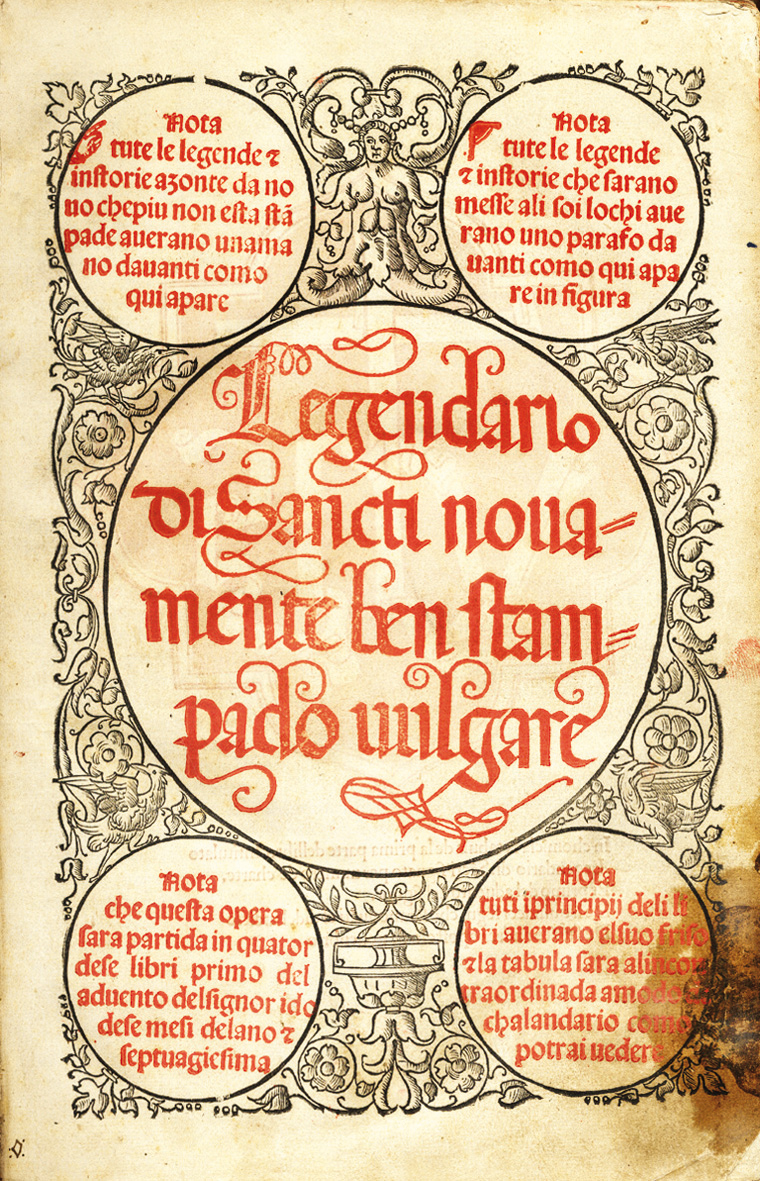 Nota
tute le legende ⁊
inſtorie azonte da no
uo chepiu non eſta ſtā
pade auerano unama
no dauanti como
qui apare
Nota
tute le legende
⁊ inſtorie che ſarano
meſſe ali ſoi lochi aue
rano uno parafo da
uanti como qui apa
re in figura
Legendario
di Sancti noua=
mente ben ſtam=
pado uulgare
Nota
che queſta opera
ſara partida in quator
deſe libri primo del
aduento delſignor ido
deſe meſi delano ⁊
ſeptuageſima
Nota
tuti iprincipij deli li
bri auerano elſuo friſo
⁊la tabula ſara alincon
traordinada amodo
chalandario como
potrai uedere